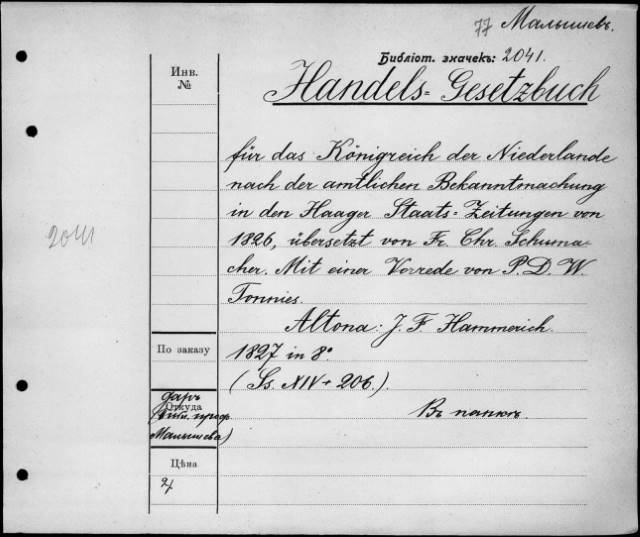 77 Малышевъ.
Библіот. значекъ: 2041.
Инв.
№
Handels= Gesetzbuch
für das Königreich der Niederlande
nach der amtlichen Bekanntmachung
in den Haager Staats=Zeitungen von
1826, übersetzt von Fr. Chr. Schuma-
cher. Mit einer Vorrede von P. D. W.
Tonnies.
2041
Altona: J. F. Hammerich.
По заказу
1827 in 8°
(Ss. XIV + 206.).
даръ
Откуда
проф.
Малышева)
Въ папкѣ.
Цѣна